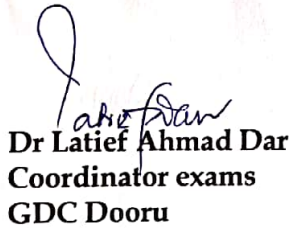 Dr Latief Ahmad Dar
Coordinator exams
GDC Dooru